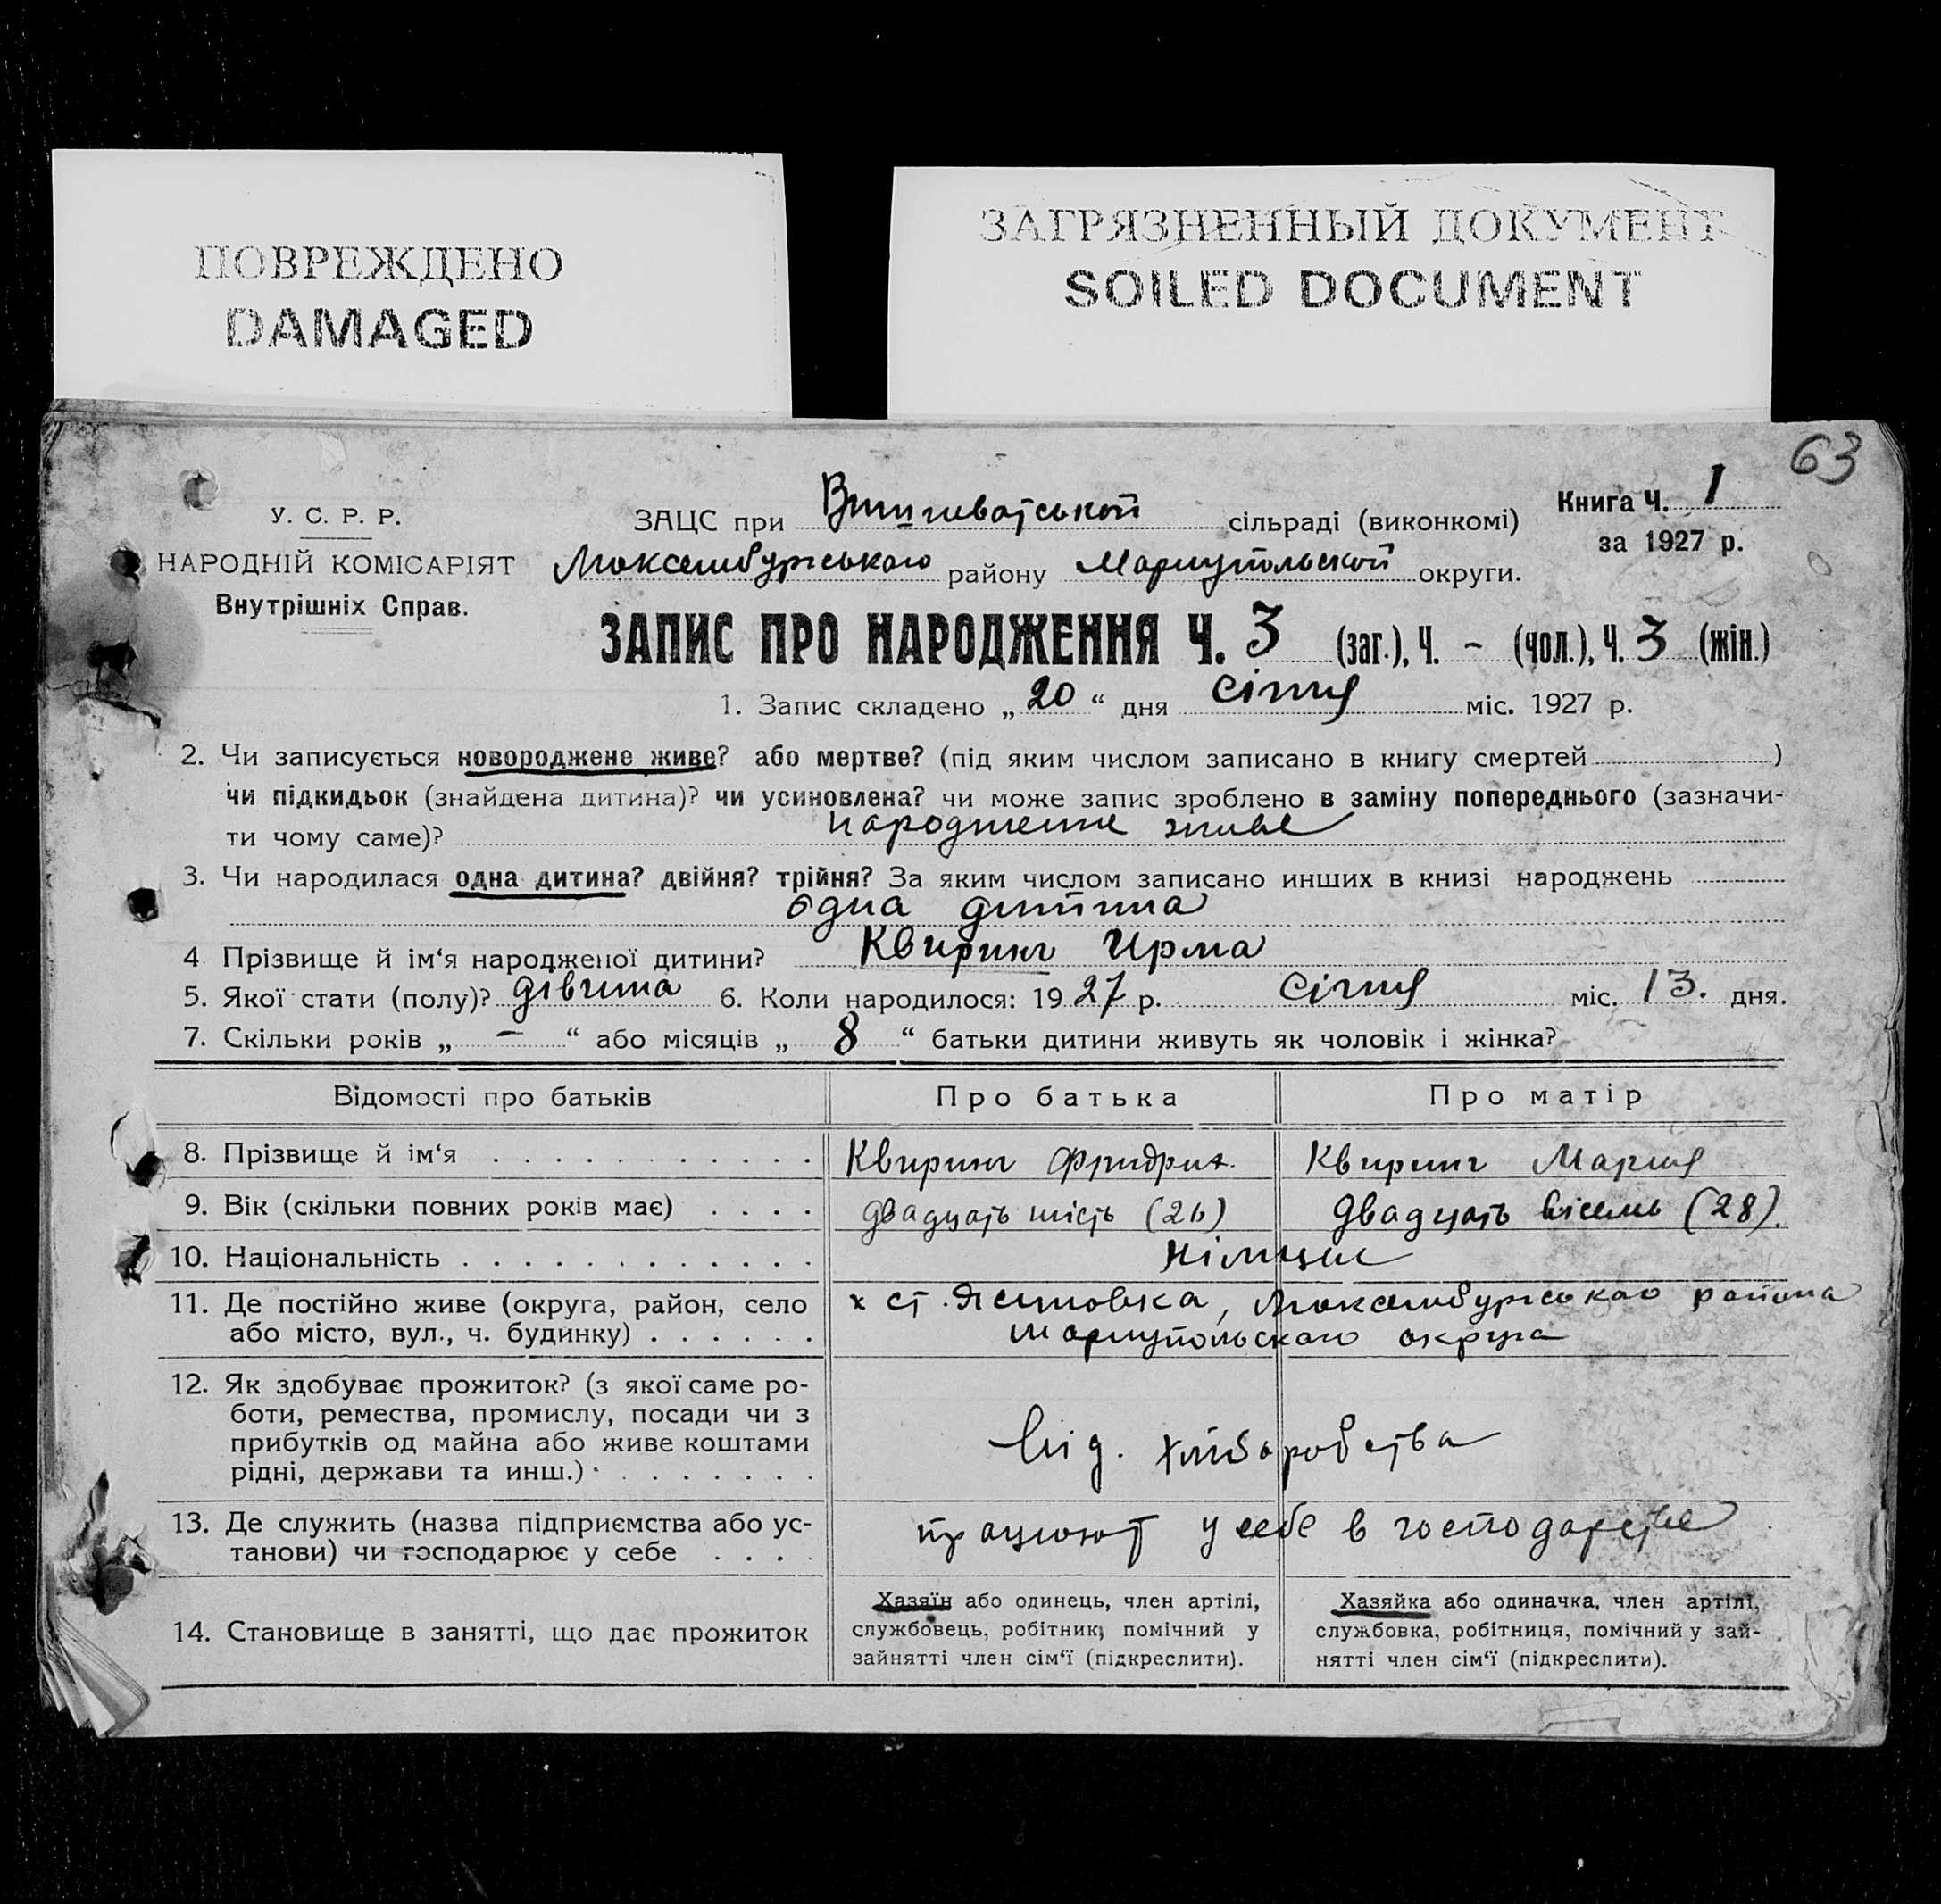 ПОВРЕЖДЕНО
DAMAGED
ЗАГРЯЗНЕННЫЙ ДОКУМЕНТ
SOILED DOCUMENT
63
У. С. Р. Р.
НАРОДНІЙ КОМІСАРІЯТ
Внутрішніх Справ.
ЗАЦС при сільраді (виконкомі)
Люксембургського району Мариупольской округи.
Книга Ч. 1
за 1927 р.
ЗАПИС ПРО НАРОДЖЕННЯ Ч. 3 (заг.), Ч. - (чол.), Ч. 3 (жін.)
1. Запис складено „ 20 “ дня січня міс. 1927 р.
2. Чи записується новороджене живе? або мертве? (під яким числом записано в книгу смертей )
чи підкидьок (знайдена дитина)? чи усиновлена? чи може запис зроблено в заміну попереднього (зазначи-
ти чому саме)? народжене живе
3. Чи народилася одна дитина? двійня? трійня? За яким числом записано инших в книзі народжень
одна дитина
4 Прізвище й ім‘я народженої дитини? Квиринг Ирма
5. Якої стати (полу)? дівчина 6. Коли народилося: 19 27 р. січня міс. 13. дня.
7. Скільки років „ - “ або місяців „ 8 “ батьки дитини живуть як чоловік і жінка?
Відомості про батьків Про батька Про матір
8. Прізвище й ім‘я Квиринг Фридрих. Квиринг Мария
9. Вік (скільки повних років має) двадцать шість (26) двадцать вісемь (28).
10. Національність німцы
11. Де постійно живе (округа, район, село
або місто, вул., ч. будинку)
х ст. Люксембургськаго района
Мариупольскаго округа
12. Як здобуває прожиток? (з якої саме ро-
боти, ремества, промислу, посади чи з
прибутків од майна або живе коштами
рідні, держави та инш.)
від. хліборобства
13. Де служить (назва підприємства або ус-
танови) чи господарює у себе
працюют у себе в господарстве
14. Становище в занятті, що дає прожиток
Хазяїн або одинець, член артілі,
службовець, робітник, помічний у
зайнятті член сім‘ї (підкреслити).
Хазяйка або одиначка, член артілі,
службовка, робітниця, помічний у зай-
нятті член сім‘ї (підкреслити).